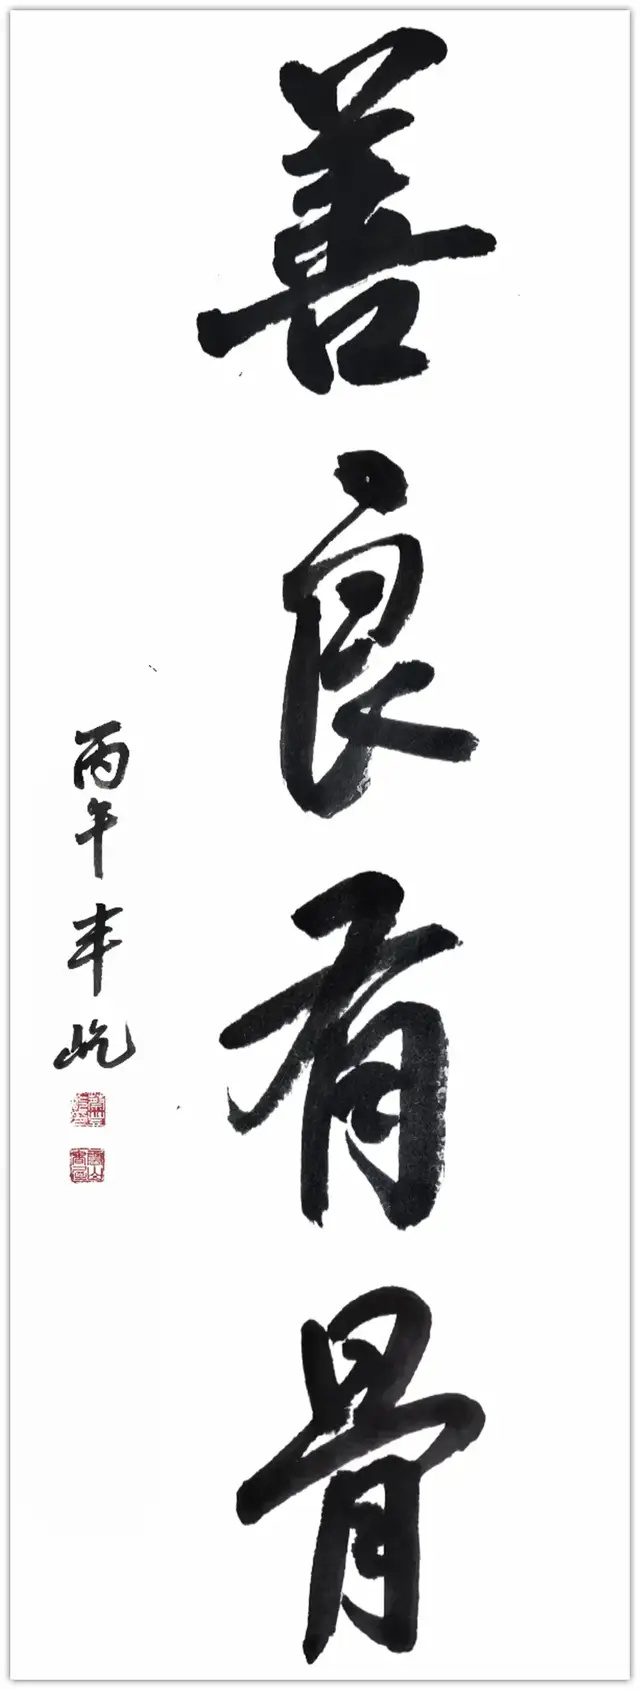 善良有骨
丙午丰屹